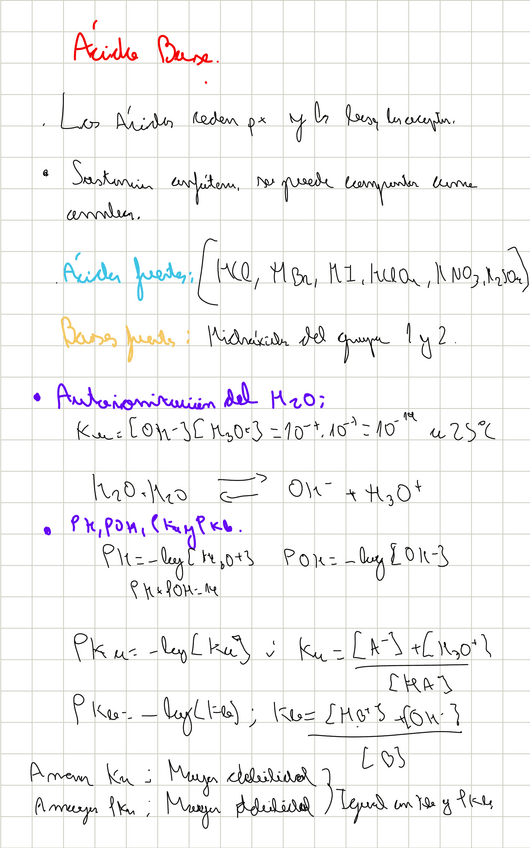 Ácido Base.
. Los Ácidos ceden p+ y las bases los aceptan.
• Sustancia anfótera, se puede comportar como ambas.
. Ácidos fuertes: (HCl, HBr, HI, HClO4, HNO3, H2SO4)
Bases fuertes: Hidróxidos del grupo 1 y 2.
• Autoionización del H2O:
Kw=[OH-][H3O+]=10-7.10-7=10-14 a 25ºC
H2O+H2O ⇌ OH- + H3O+
• PH, POH, PKa y PKb.
PH=-log[H3O+] POH=-log[OH-]
PH+POH=14
PKa=-log[Ka] ; Ka=[A-]+[H3O+]
[HA]
PKb=-log(Kb); Kb=[HB+]+[OH-]
[B]
A menor Ka ; Mayor debilidad
A mayor PKa ; Mayor debilidad } Igual con Kb y PKb